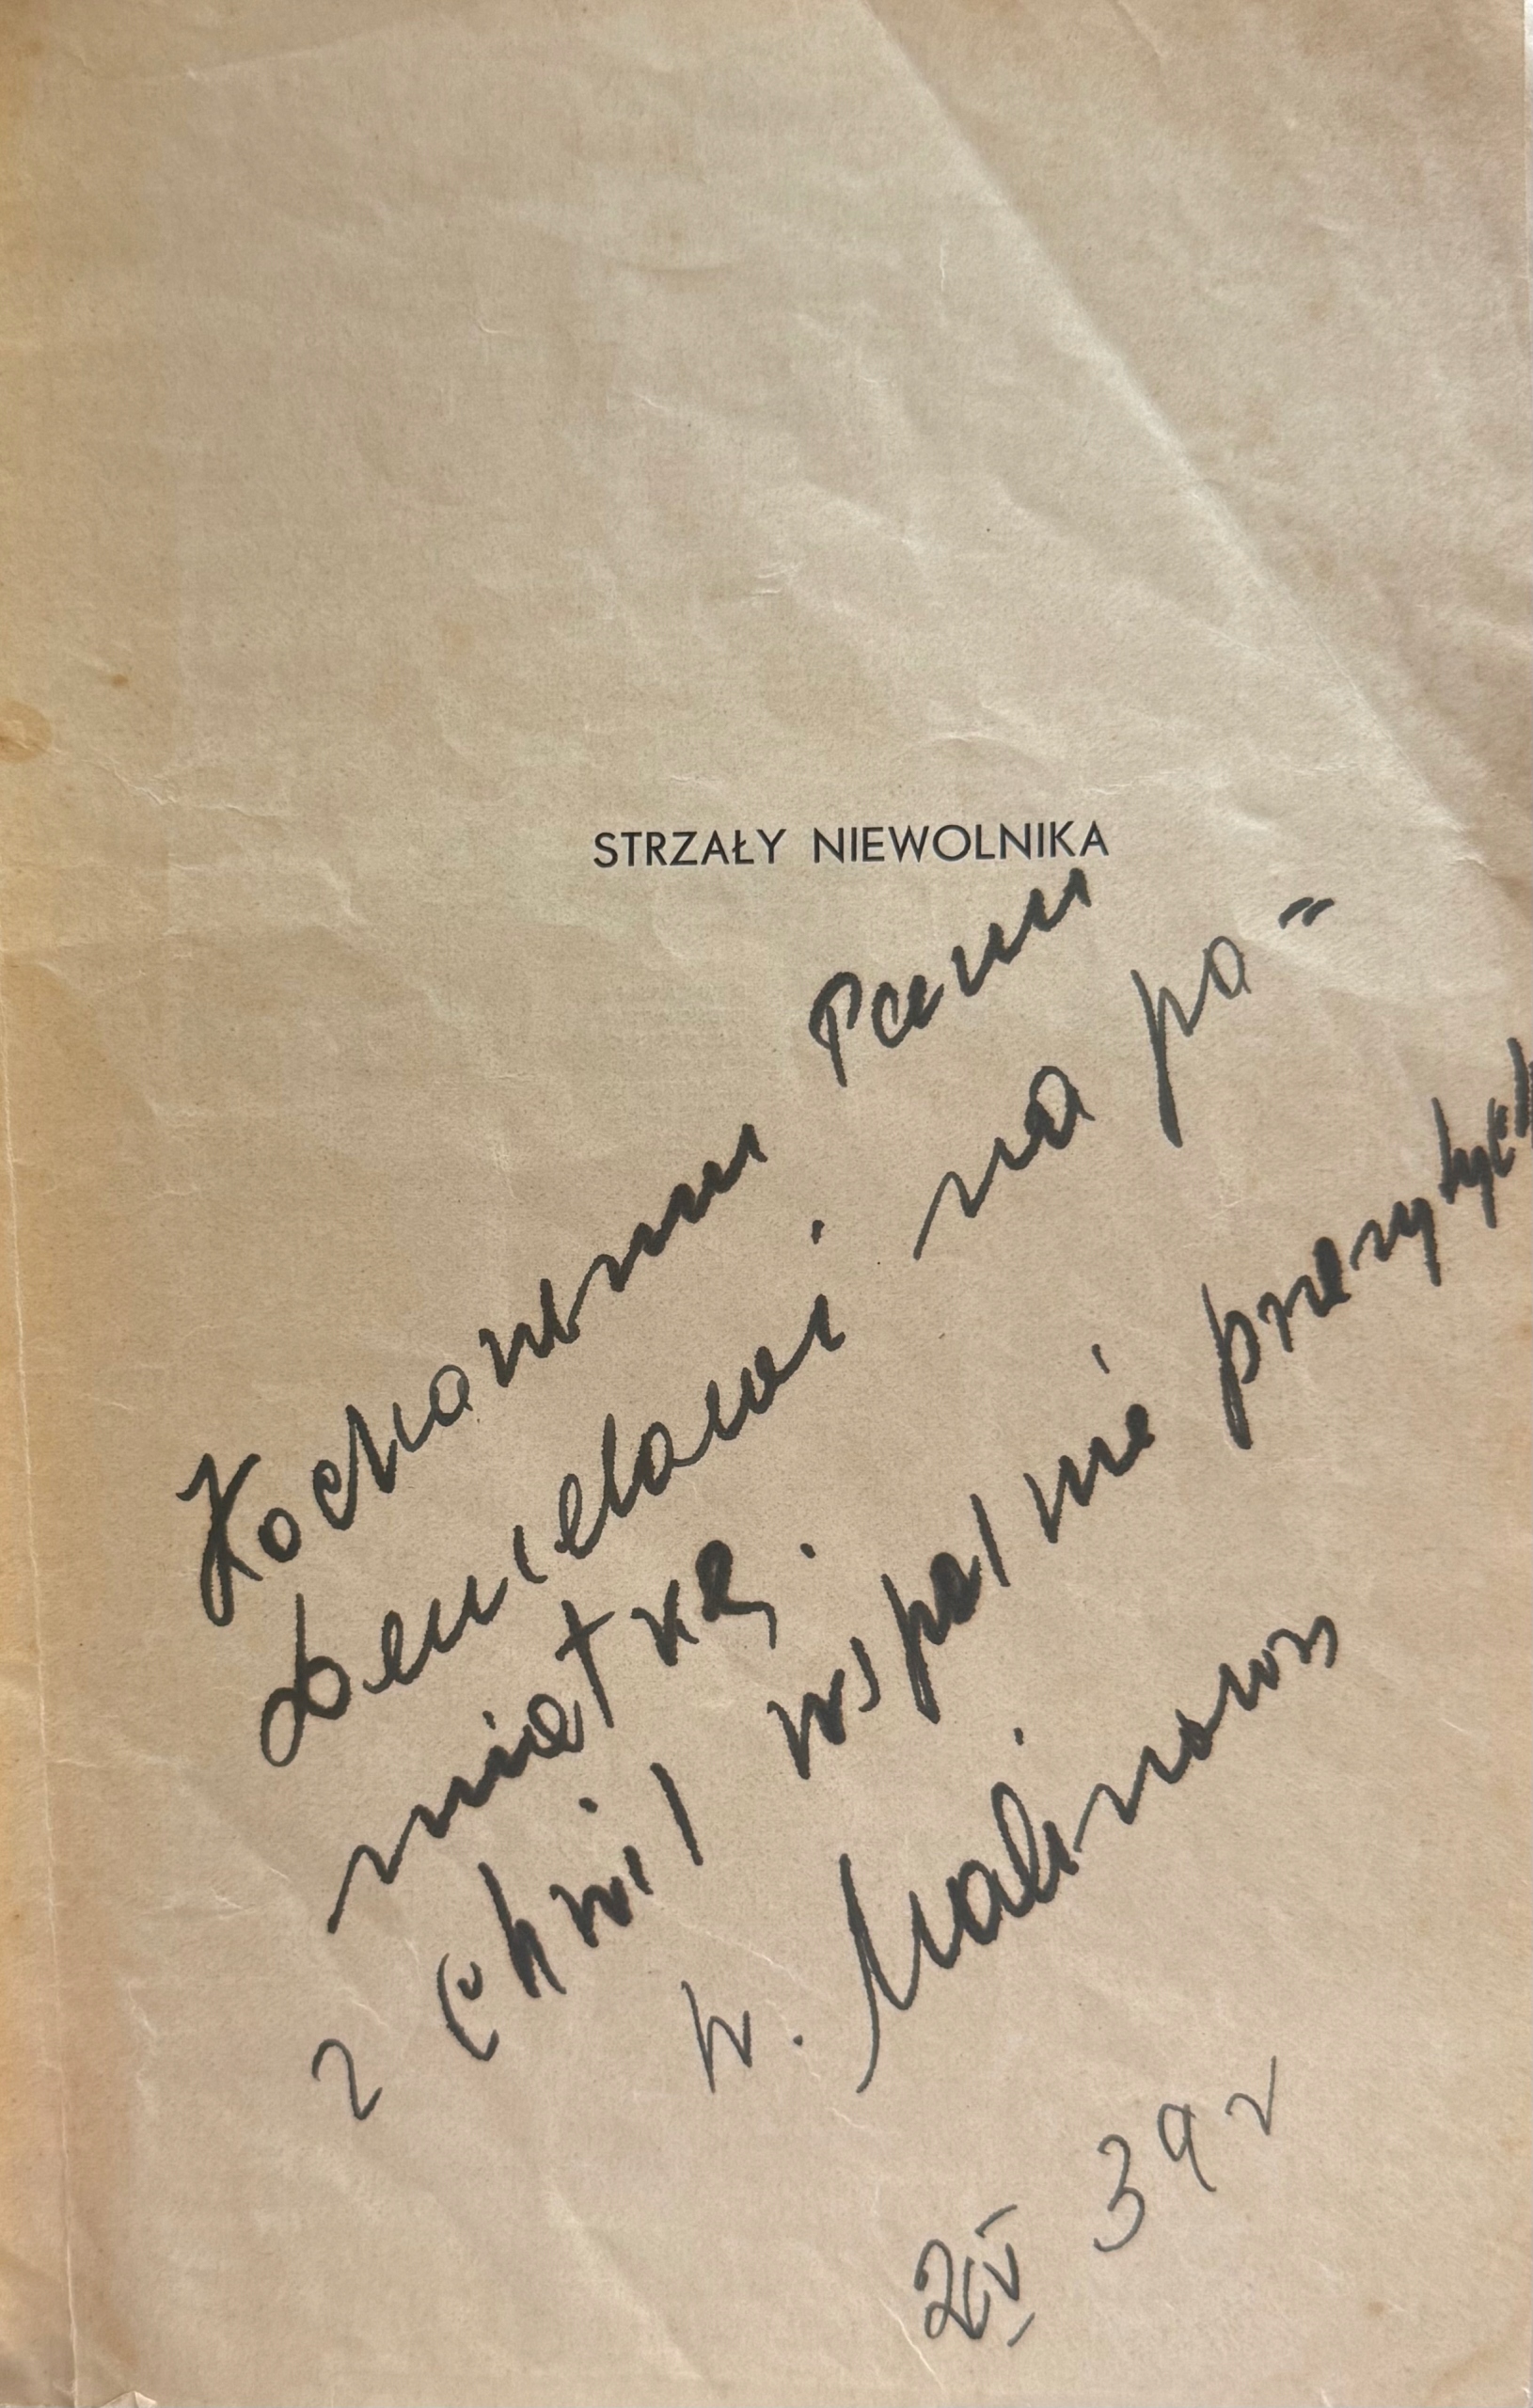 STRZAŁY NIEWOLNIKA
Kochanemu Panu
Danielowi na pa=
miątkę
z chwil wspólnie przeżytych
W. Malinows
2 IV 39 r